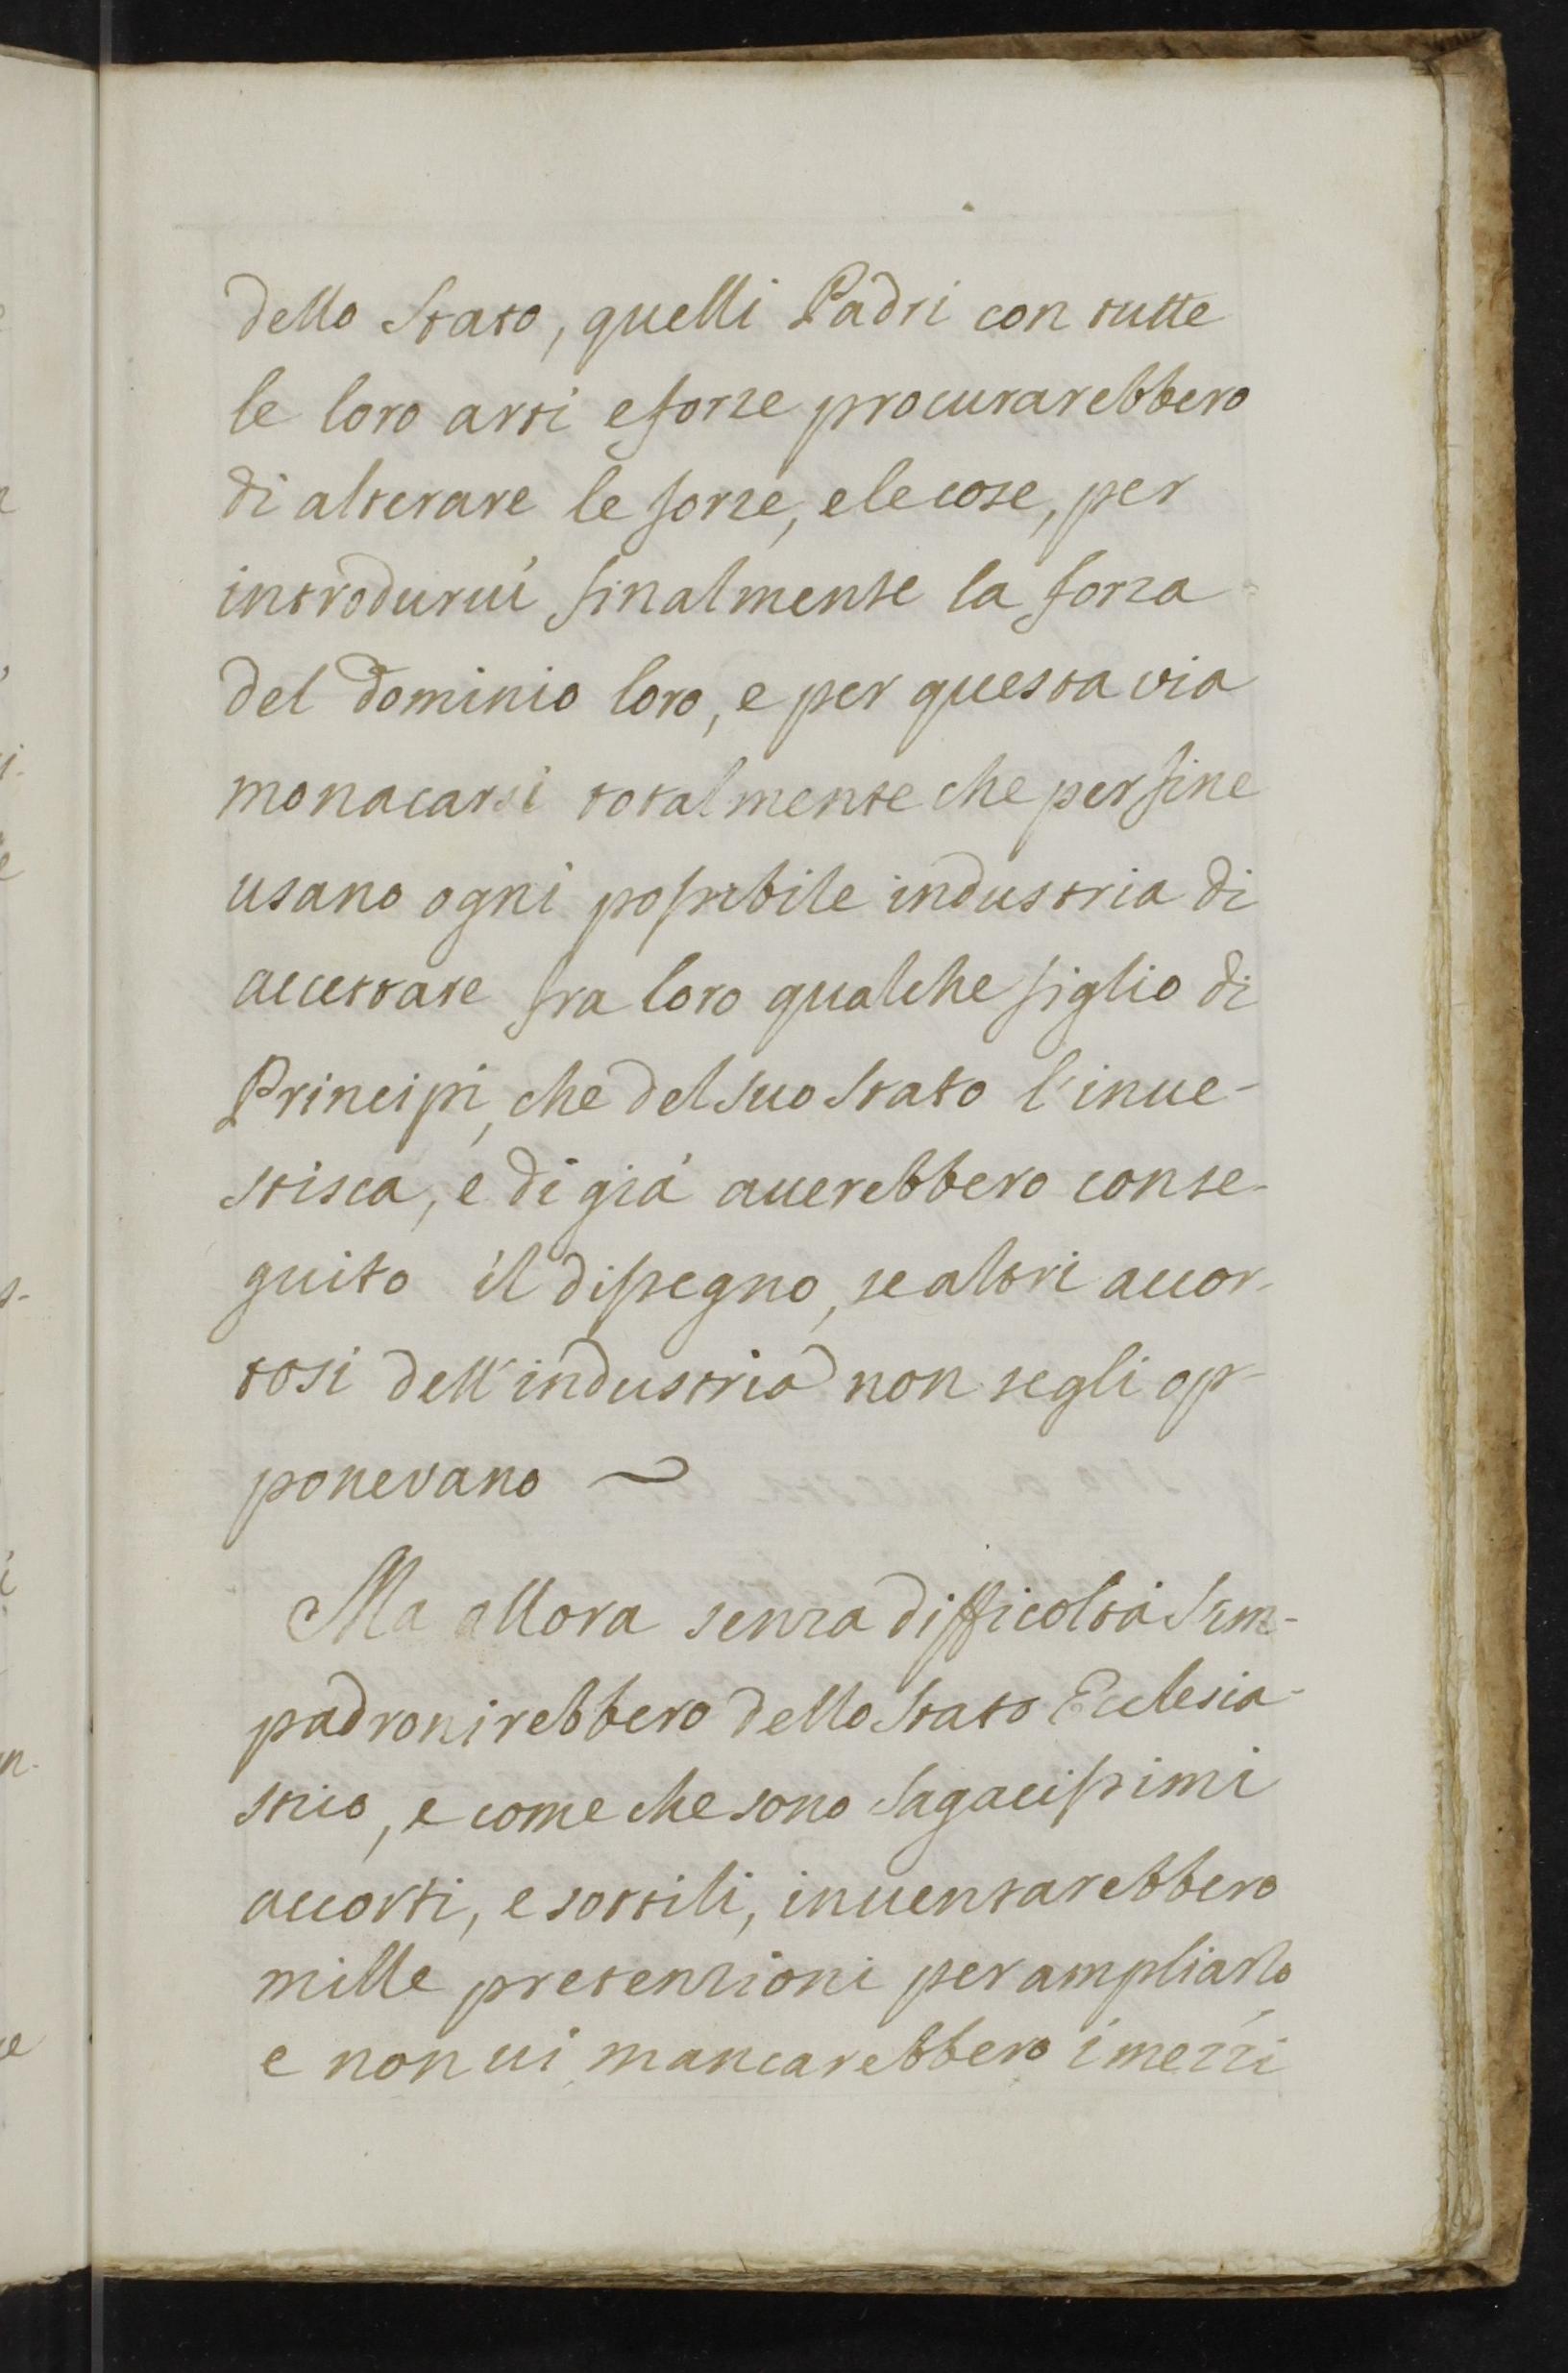 dello Stato, quelli Padri con tutte
le loro arti e forze procurarebbero
di alterare le forze, e le cose, per
introdurui finalmente la forza
del dominio loro, e per questa via
monacarsi totalmente che per fine
usano ogni possibile industria di
accettare fra loro qualche figlio di
Principi, che del suo Stato l'inue-
stisca, e di già auerebbero conse-
guito il dissegno, se altri accor-
tosi dell'industria non segli op-
ponevano ~
Ma allora senza difficoltà S'im-
padronirebbero dello Stato Ecclesia-
stico, e come che sono Sagacissimi
accorti, e sottili, inuentarebbero
mille pretenzioni per ampliarlo
e non ui mancarebbero i mezzi